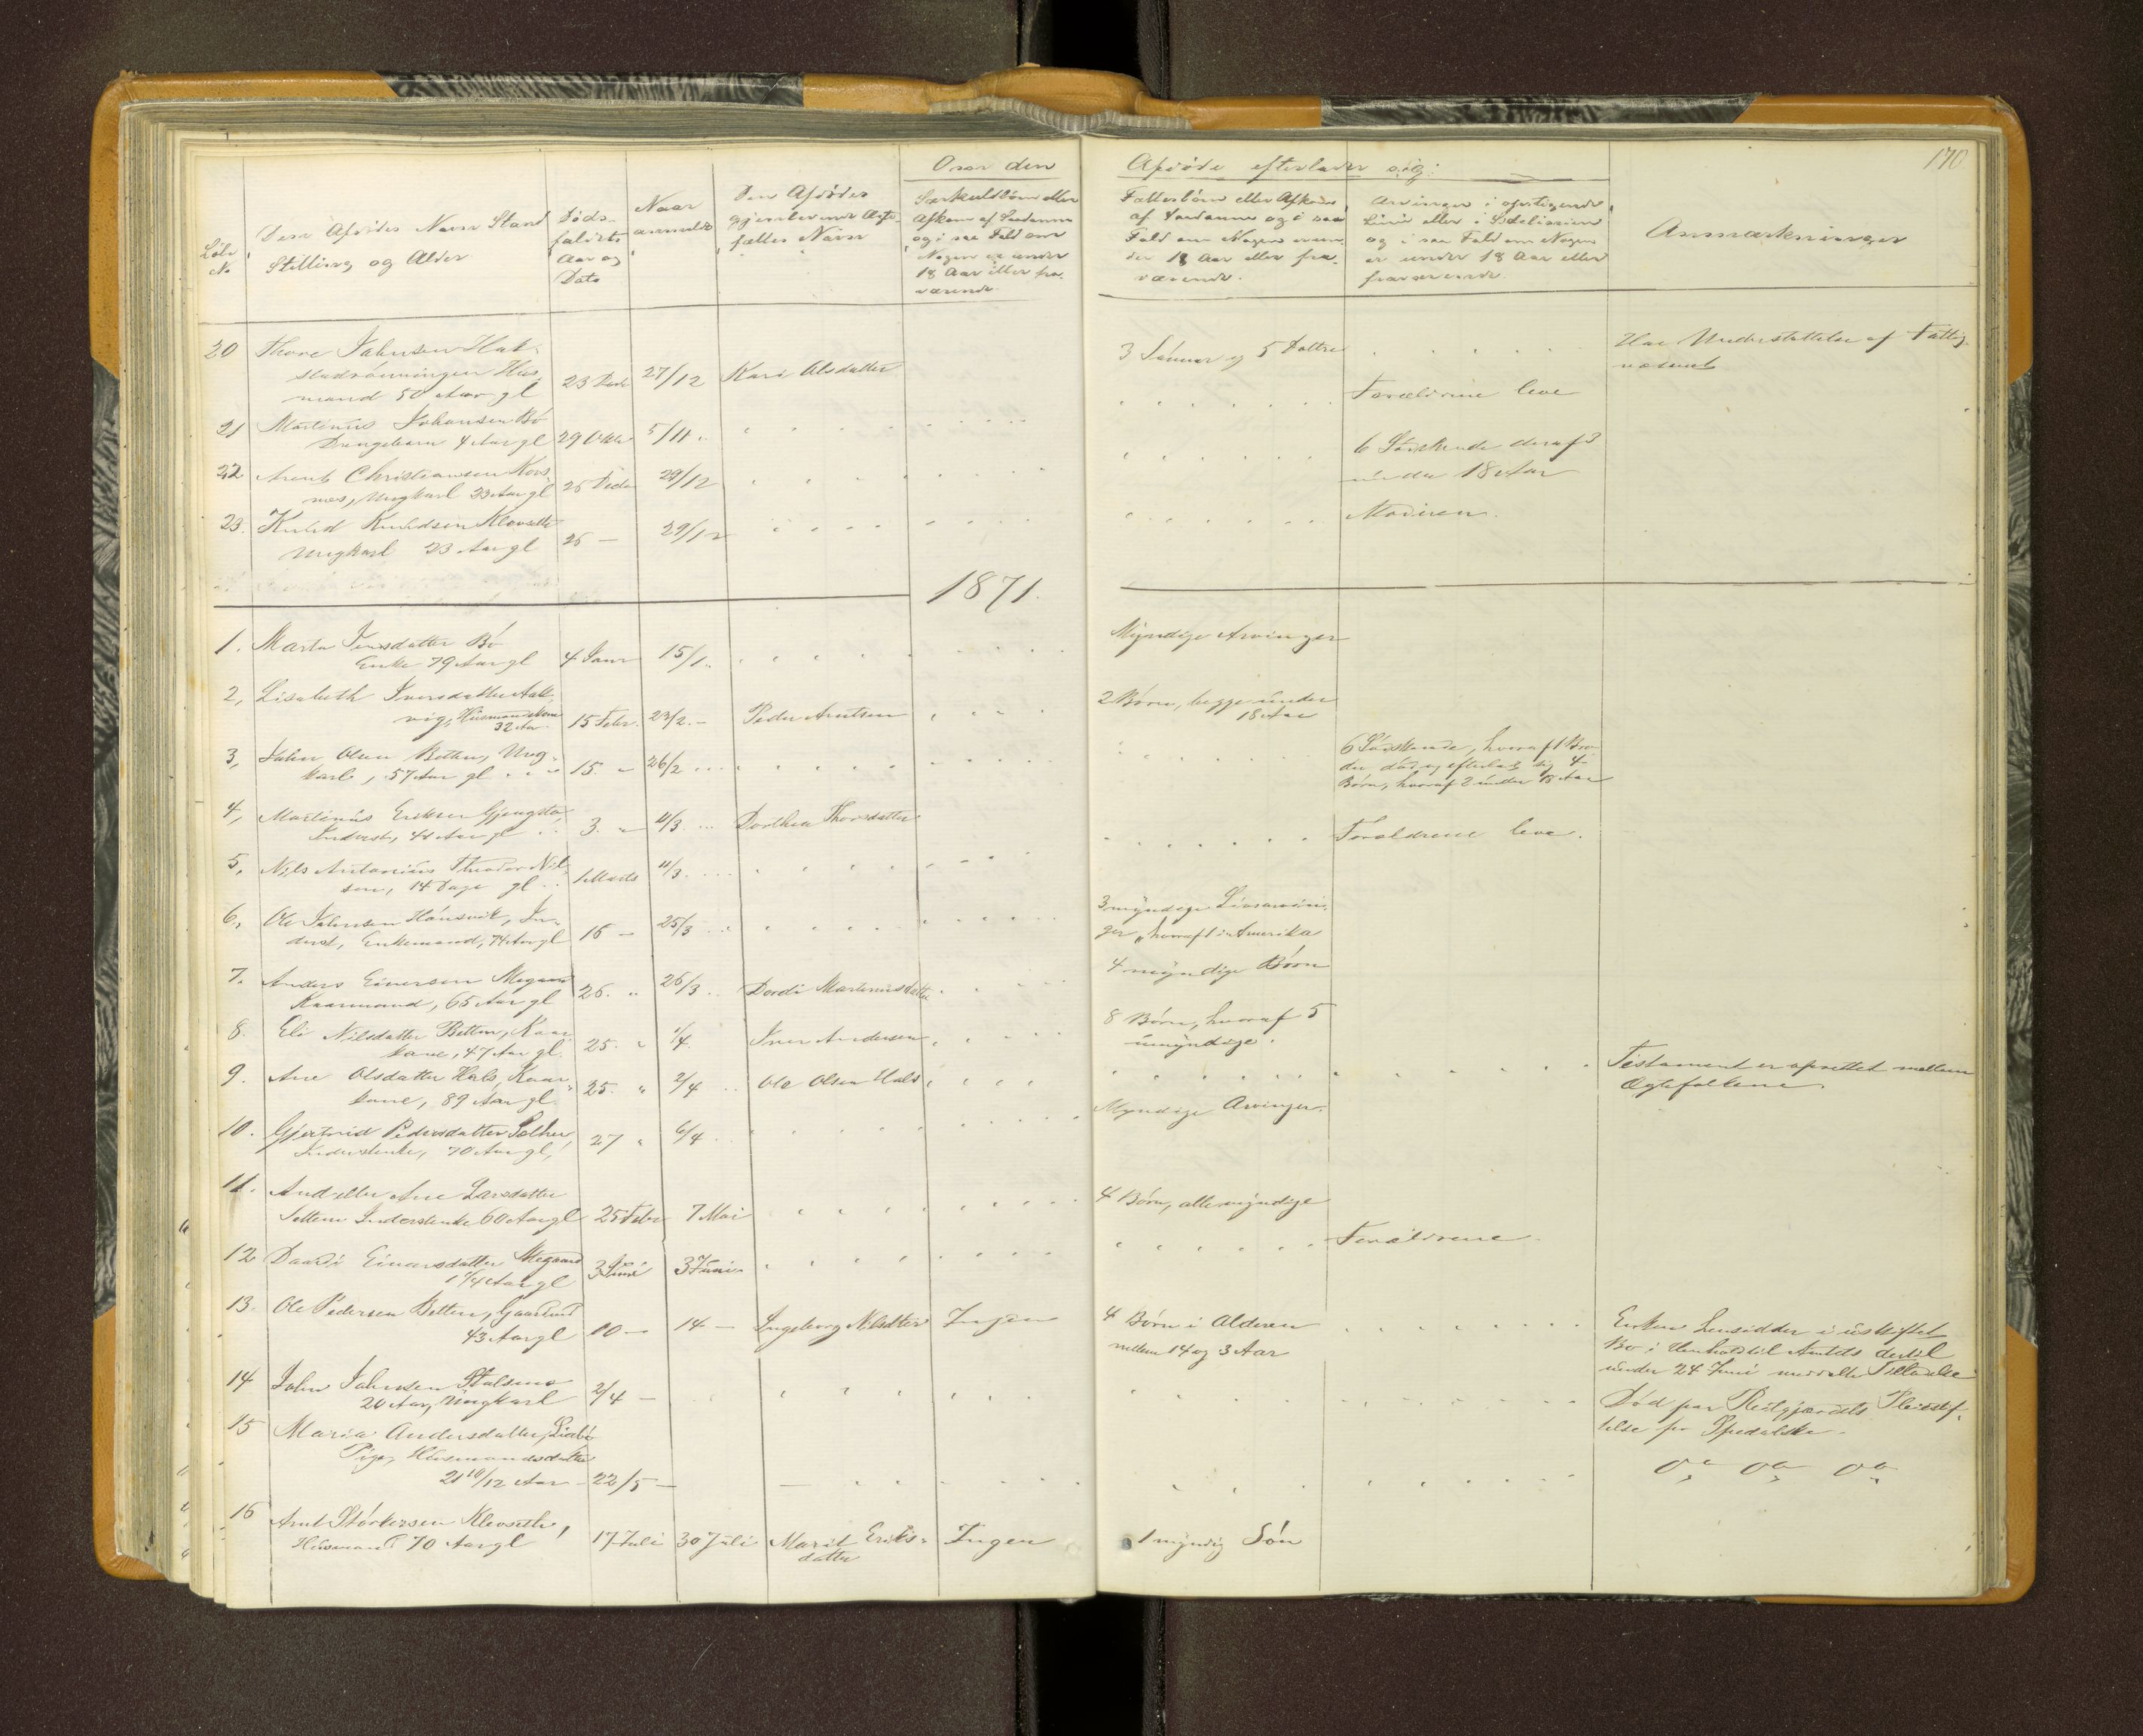 170
Løbe No
Den Afdødes Navn Stand
Stilling og Alder
Døds-
faldets
Aar og
Dato
Naar
anmeldt
Den Afdødes
gjenlevende Ægte-
fælles Navn
Hvor den
Afdøde efterlader sig:
Særkuldbørn eller
Afkom af Saadanne
og i saa Fald om
Nogen er under
18 Aar eller fra-
værende.
Fællesbørn eller Afkom
af Saadanne og i saa
Fald om Nogen er un-
der 18 Aar eller fra-
værende.
Arvinger i opstigende
Linie eller i Sidelinien
og i saa Fald om Nogen
er under 18 Aar eller
fraværende.
Anmærkninger
20 Thore Johnsen
mand 50 Aar gl 23 27/12 Kari Olsdatter 3 Sønner og 5 Døttre Har Understøttelse af Fattig-
væsenet
21 Martinus Johansen Bö
Drengebarn 4 Aar gl 29 Okt 5/11 Forældrene leve
22 Arent Christiansen
Ungkarl 23 Aar gl 26 Decbr 29/12 6 Södskende deraf 3
under 18 Aar
23. Knud Knudsen Klevseth
Ungkarl 23 Aar gl 26 — 29/12 Moderen.
1871.
1. Marta Jensdatter Bö
Enke 79 Aar gl 4 Janr 15/1 Myndige Arvinger
2, Lisabeth Iversdatter Aak-
vig, Huusmandskone
32 Aar 15 Febr. 23/2 Peder Arntsen 2 Börn, begge under
18 Aar
3, John Olsen Betten, Ung-
karl, 57 Aar gl 15. 26/2 6 Södskende, hvoraf 1 Bro-
der död og efterlod sig 4
Börn, hvoraf 2 under 18 Aar
4, Martinus Eriksen
Inderst, 41 Aar gl 3. 11/3 Dorthea Thorsdatter
Forældrene leve.
5, Nils Antonius Theodor Nil-
sen, 14 Dage gl 1 Marts 11/3
6, Ole Johnsen Hönsvik, In-
derst, Enkemand, 74 Aar gl 16 — 25/3 3 myndige Livsarvin-
ger, hvoraf 1 i Amerika
7. Anders Einersen Megaard
Kaarmand, 65 Aar gl 26. 26/3 Dordi Martinusdatter 4 myndige Börn
8. Eli Nilsdatter Betten, Kaar-
kone, 47 Aar gl. 25. 1/4 Iver Andersen 8 Börn, hvoraf 5
umyndige.
9. Ane Olsdatter Hals, Kaar-
kone, 89 Aar gl. 25. 2/4 Ole Olsen Hals Testament er oprettet mellem
Ægtefolkene.
10. Gjertrud Pedersdatter
Inderstenke, 70 Aar gl, 27 6/4 Myndige Arvinger.
11. And eller Ane Larsdatter
Inderstenke 60 Aar gl 25 Febr 7 Mai 4 Börn, alle myndige
12 Dordi Einarsdatter Megaard
1 1/4 Aar gl 3 Juni 3 Juni Forældrene.
13. Ole Pedersen Betten, Gaardmd
43 Aar gl 10 — 14 — Ingeborg Nilsdtter Ingen 4 Börn i Alderen
mellem 14 og 3 Aar Enken hensidder i uskiftet
Bo i Henhold til Amtets dertil
under 24 Juni meddelte Tilladelse
14 John Johnsen
20 Aar, Ungkarl 2/4 — Död paa Reitgjærdets Pleiestif-
telse for Spedalske.
15 Maria Andersdatter,
Pige, Husmandsdatter
21 10/12 Aar 22/5 —
16 Arnt Störkersen Klevseth,
Husmand 70 Aar gl 17 Juli 30 Juli Marit Eriks-
datter Ingen 1 myndig Sön